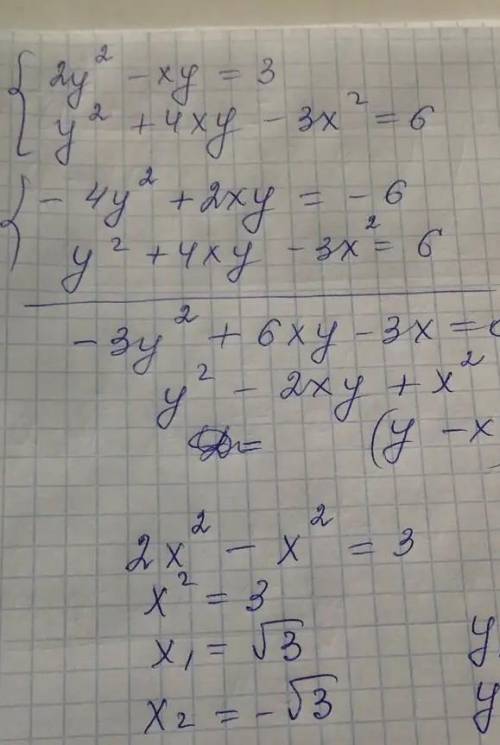 2y² - xy = 3
y² + 4xy - 3x² = 6
- 4y² + 2xy = - 6
y² + 4xy - 3x² = 6
- 3y² + 6xy - 3x =
y² - 2xy + x²
(y - x
2x² - x² = 3
x² = 3
x₁ = √3
y
x₂ = -√3
y